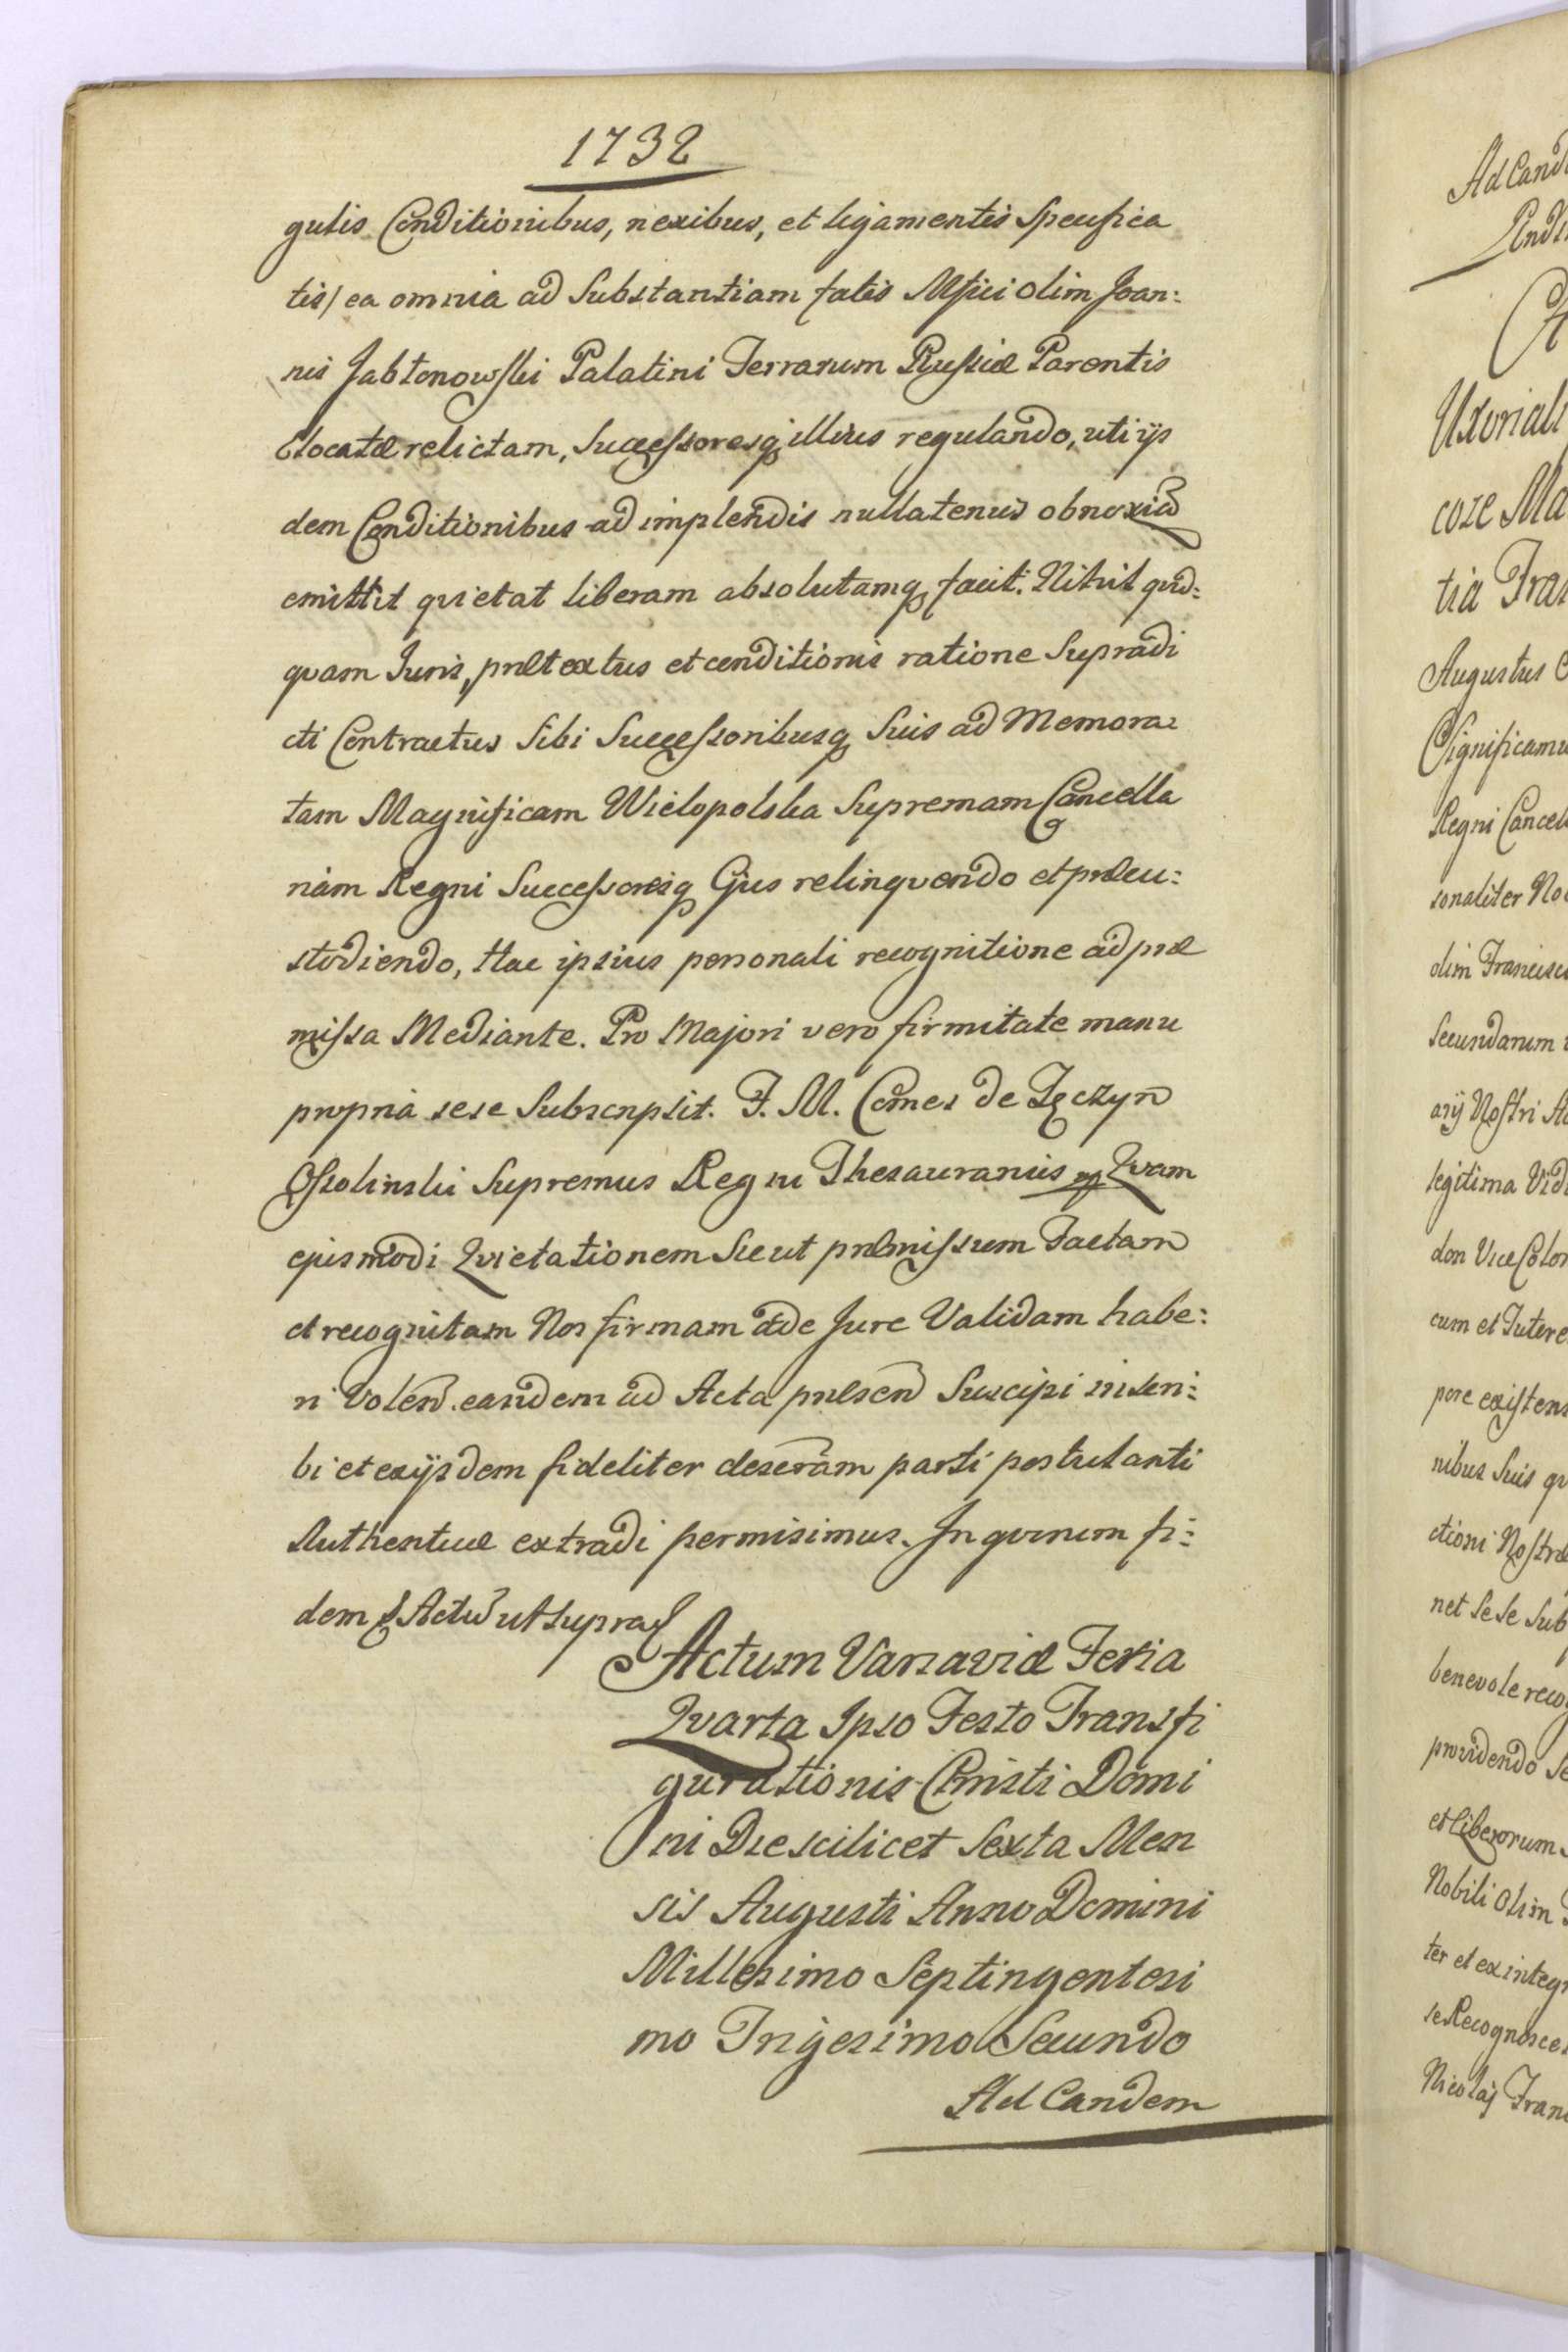 1732
gulis Conditionibus, nexibus, et ligamentis Specifica
tis/ ea omnia ad Substantiam fatis Mfici olim Joan:
nis Jabłonowski Palatini Terrarum Russiæ Parentis
Elocatæ relictam, Successoresq illius regulando, uti ijs
dem Conditionibus adimplendis nullatenus obnoxia
emittit quietat liberam absolutamq facit. Nihil quid:
quam Juris, prætextus et conditionis ratione Supradi
cti Contractus Sibi Successoribusq Suis ad Memora:
tam Magnificam Wielopolska Supremam Cancella
riam Regni Successoresq Ejus relinquendo et præcu:
stodiendo, Hac ipsius personali recognitione ad præ
missa Mediante. Pro Majori vero firmitate manu
propria sese Subscripsit. F. M. Comes de Tęczyn
Ossolinski Supremus Regni Thesaurarius mp Quam
ejusmodi Quietationem Sicut præmissum Factam
et recognitam Nos firmam & de Jure Validam habe:
ri Volen. eandem ad Acta præsen Suscipi inscri:
bi et exijsdem fideliter descram parti postulanti
Authenticæ extradi permisimus. In quorum fi:
dem & Actu ut supra
Actum Varsaviæ Feria
Quarta Ipso Festo Transfi
gurationis Christi Domi
ni Die scilicet Sexta Men
sis Augusti Anno Domini
Millesimo Septingentesi
mo Trigesimo Secundo
Ad Eandem
Ad Cand
Uxoriali
core Ma
tia Fran
Augustus
Significamu
Regni Cancel
sonaliter No
olim Francisc
Secundarum
arij Nostri A
legitima Vid
don Vice Colon
cum et Tutere
pore existens
nibus Suis qu
ctioni Nostræ
net Sese Sub
benevole reco
providendo Se
et Liberorum
Nobili Olim
ter et ex integr
se Recognosce
Nicolaj Fran